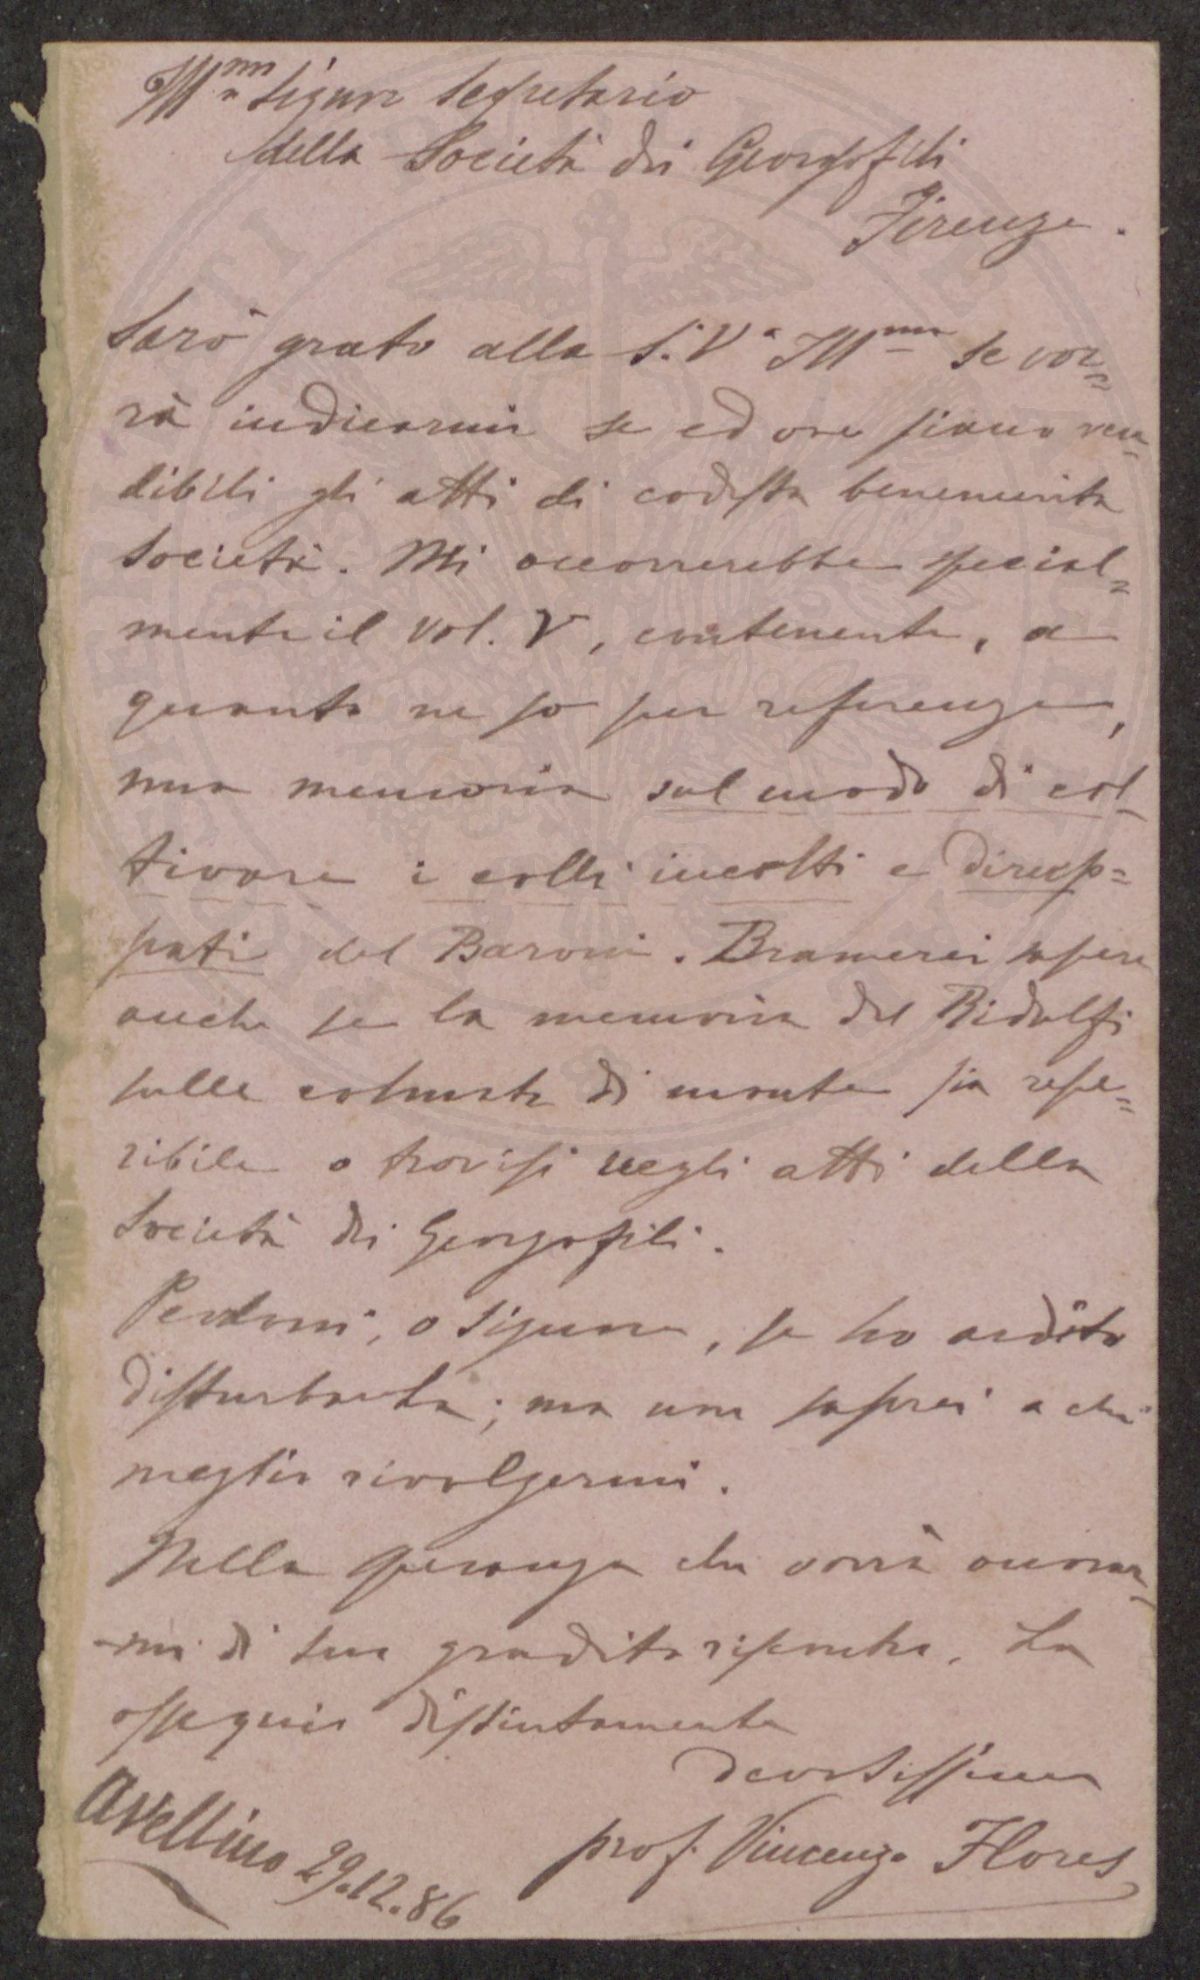 Ill.mo Signor Segretario
della Società dei Georgofili
Firenze.
Sarò grato alla S.V.a Ill.ma se vor=
rà indicarmi se ed ove siano ven=
dibili gli atti di codesta benemerita
Società. Mi occorrerebbe special=
mente il vol. V, contenente, a
quanto ne so per referenze,
una memoria sul modo di col=
tivare i colli incolti e dirup=
pati del Baroni. Bramerei sapere
anche se la memoria del Ridolfi
sulle colmate di monte sia repe=
ribile o trovisi negli atti della
Società dei Georgofili.
Perdoni, o Signore, se ho ardito
disturbarla; ma non saprei a chi
meglio rivolgermi.
Nella speranza che vorrà onorar=
mi di sua gradita risposta, La
ossequio distintamente
devotissimo
prof. Vincenzo Flores
Avellino 29.12.86